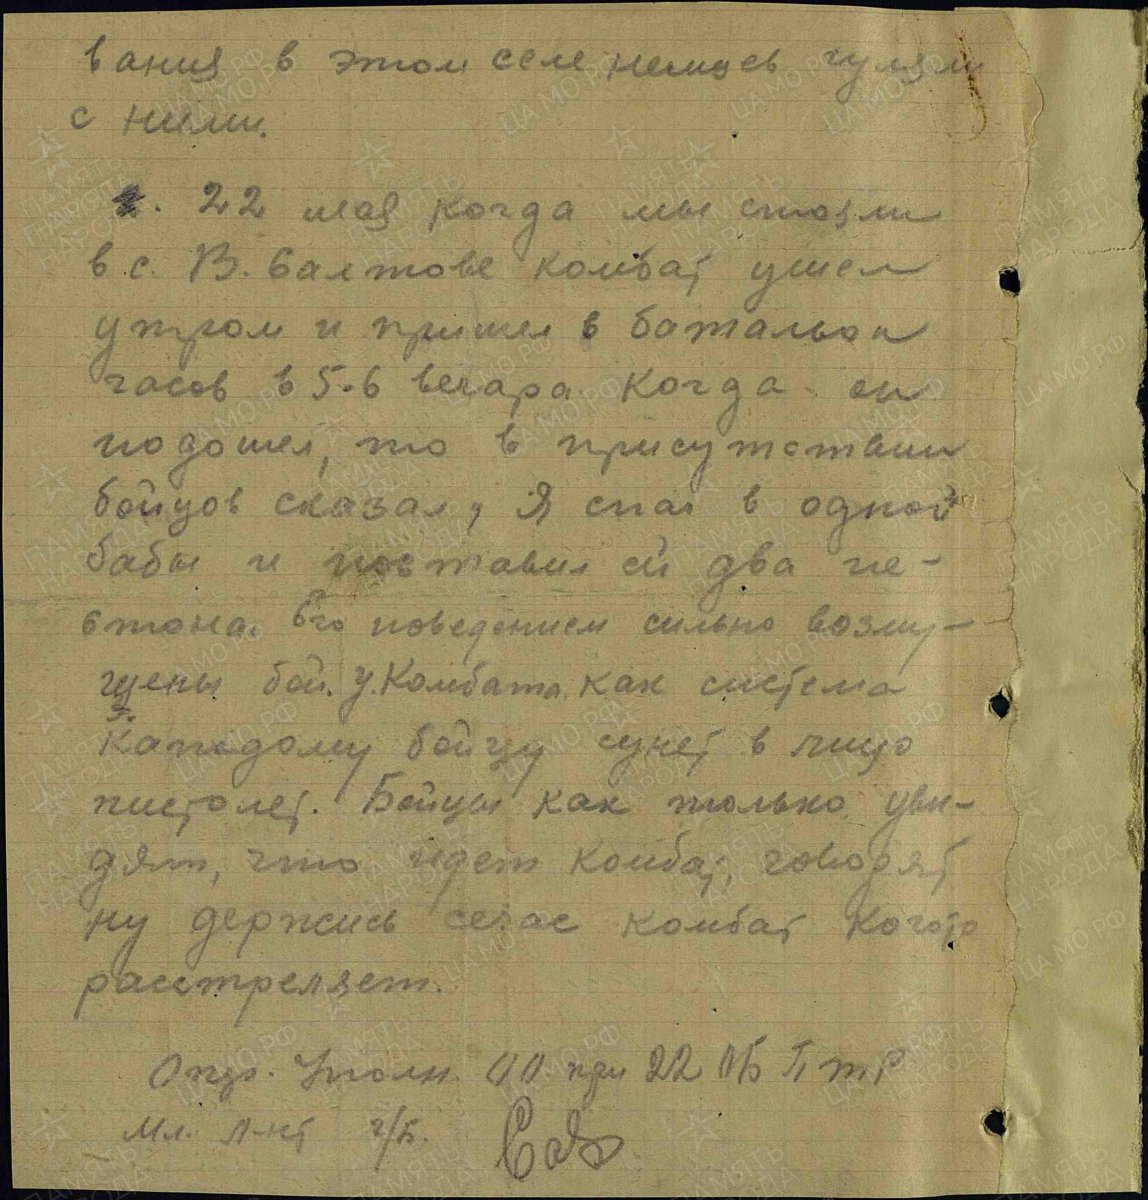 вания в этом селе немцев гуляли
с ними.
2. 22 мая когда мы стояли
в с. В. Балтове комбат ушел
утром и пришел в батальон
часов в 5-6 вечара. Когда он
подошел, то в присутствии
бойцов сказал, Я спал в одной
бабы и поставил ей два пе-
стона. Его поведением сильно возму-
щены бой. У Комбата, как система
Каждому бойцу сунет в лицо
пистолет. Бойцы как только уви-
дят, что идет комбат, говорят
ну держись сечас комбат когото
расстреляет.
Опер. Уполн. ОО при 22 ОБ ПТР
Мл. л-нт г/б.